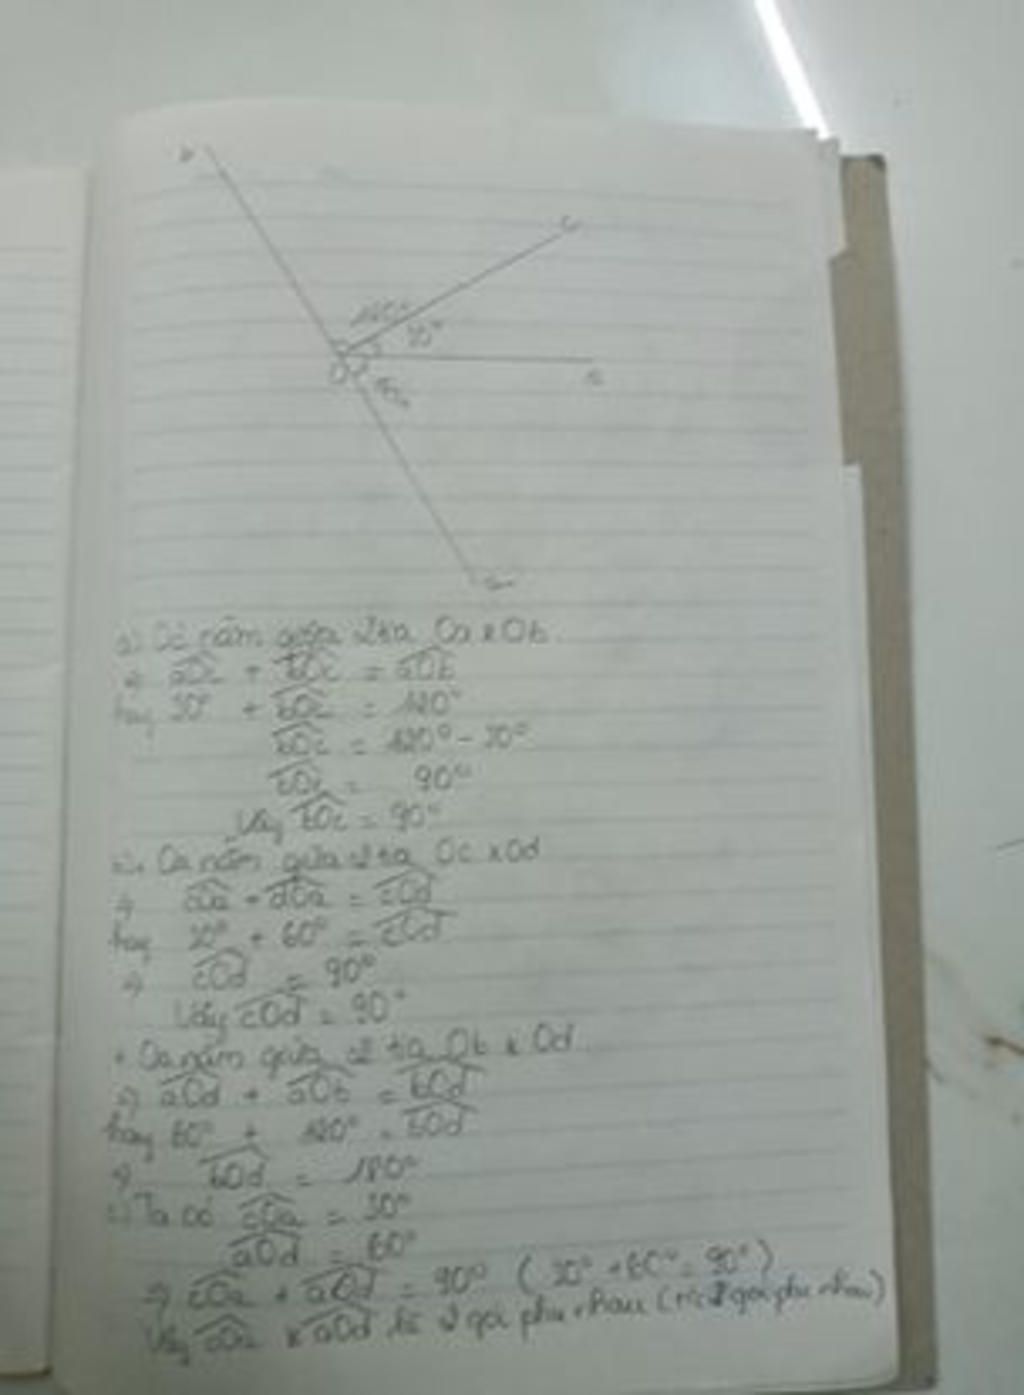 b
c
120°
30°
O
60°
a
d
a). Oc nằm giữa 2 tia Oa x Ob.
=> aOc + bOc = aOb
hay 30° + bOc = 120°
bOc = 120° - 30°
bOc = 90°
Vậy bOc = 90°
Oa nằm giữa 2 tia Oc x Od
=> cOa + dOa = cOd
hay 30° + 60° = cOd
=> cOd = 90°
Vậy cOd = 90°
+ Oa nằm giữa 2 tia Ob x Od
=> aOd + aOb = bOd
hay 60° + 120° = bOd
=> bOd = 180°
c). Ta có cOa = 30°
aOd = 60°
=> cOa + aOd = 90° ( 30° + 60° = 90° )
Vậy cOa x aOd là 2 góc phụ nhau ( 2 góc phụ nhau)